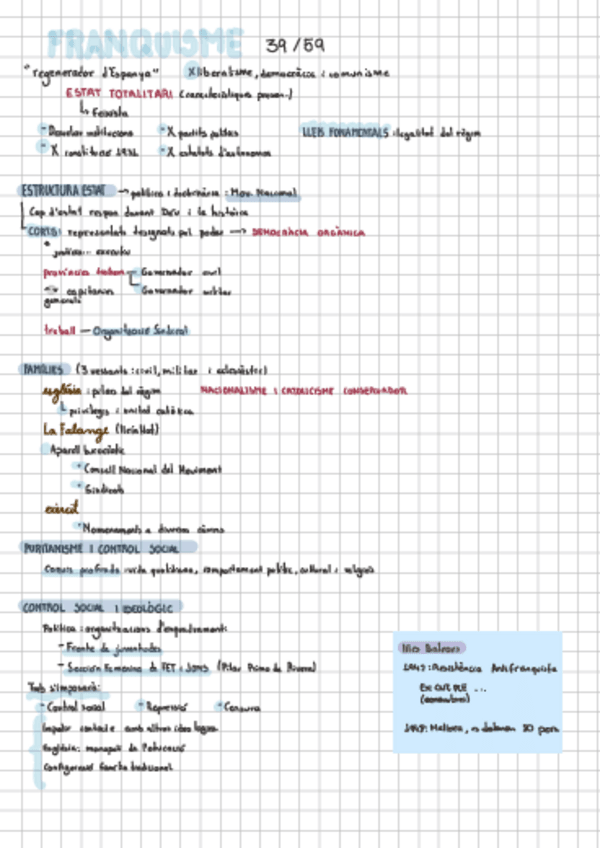 FRANQUISME 39/59
"regenerador d'Espanya" X liberalisme, democràcia i comunisme
ESTAT TOTALITARI (característiques
↳ Feixista
• Dissoldre institucions • X partits polítics LLEIS FONAMENTALS: legalitat del règim
• X constitució 1931 • X estatuts d'autonomia
ESTRUCTURA ESTAT → política i doctrinària: Mov. Nacional
Cap d'estat respon davant Déu i la història
CORTS: representants designats pel poder → DEMOCRÀCIA ORGÀNICA
províncies Governador civil
capitanies Governador militar
generals
treball — Organització Sindical
FAMÍLIES (3 vessants: civil, militar i eclesiàstic)
església: pilar del règim NACIONALISME I CATOLICISME CONSERVADOR
↳ privilegis i unitat catòlica
La Falange
Aparell burocràtic
• Consell Nacional del Moviment
• Sindicats
exèrcit
• Nomenaments a diversos càrrecs
PURITANISME I CONTROL SOCIAL
Canvis profunds: vida quotidiana, comportament polític, cultural i religiós
CONTROL SOCIAL I IDEOLÒGIC
Política: organitzacions d'enquadrament:
- Frente de juventudes
- Sección Femenina de FET i JONS (Pilar Primo de Rivera)
• Control social • Repressió • Censura
Impedir contacte amb altres ideologies
Església: monopoli de l'educació
família tradicional
Illes Balears
Resistència Antifranquista